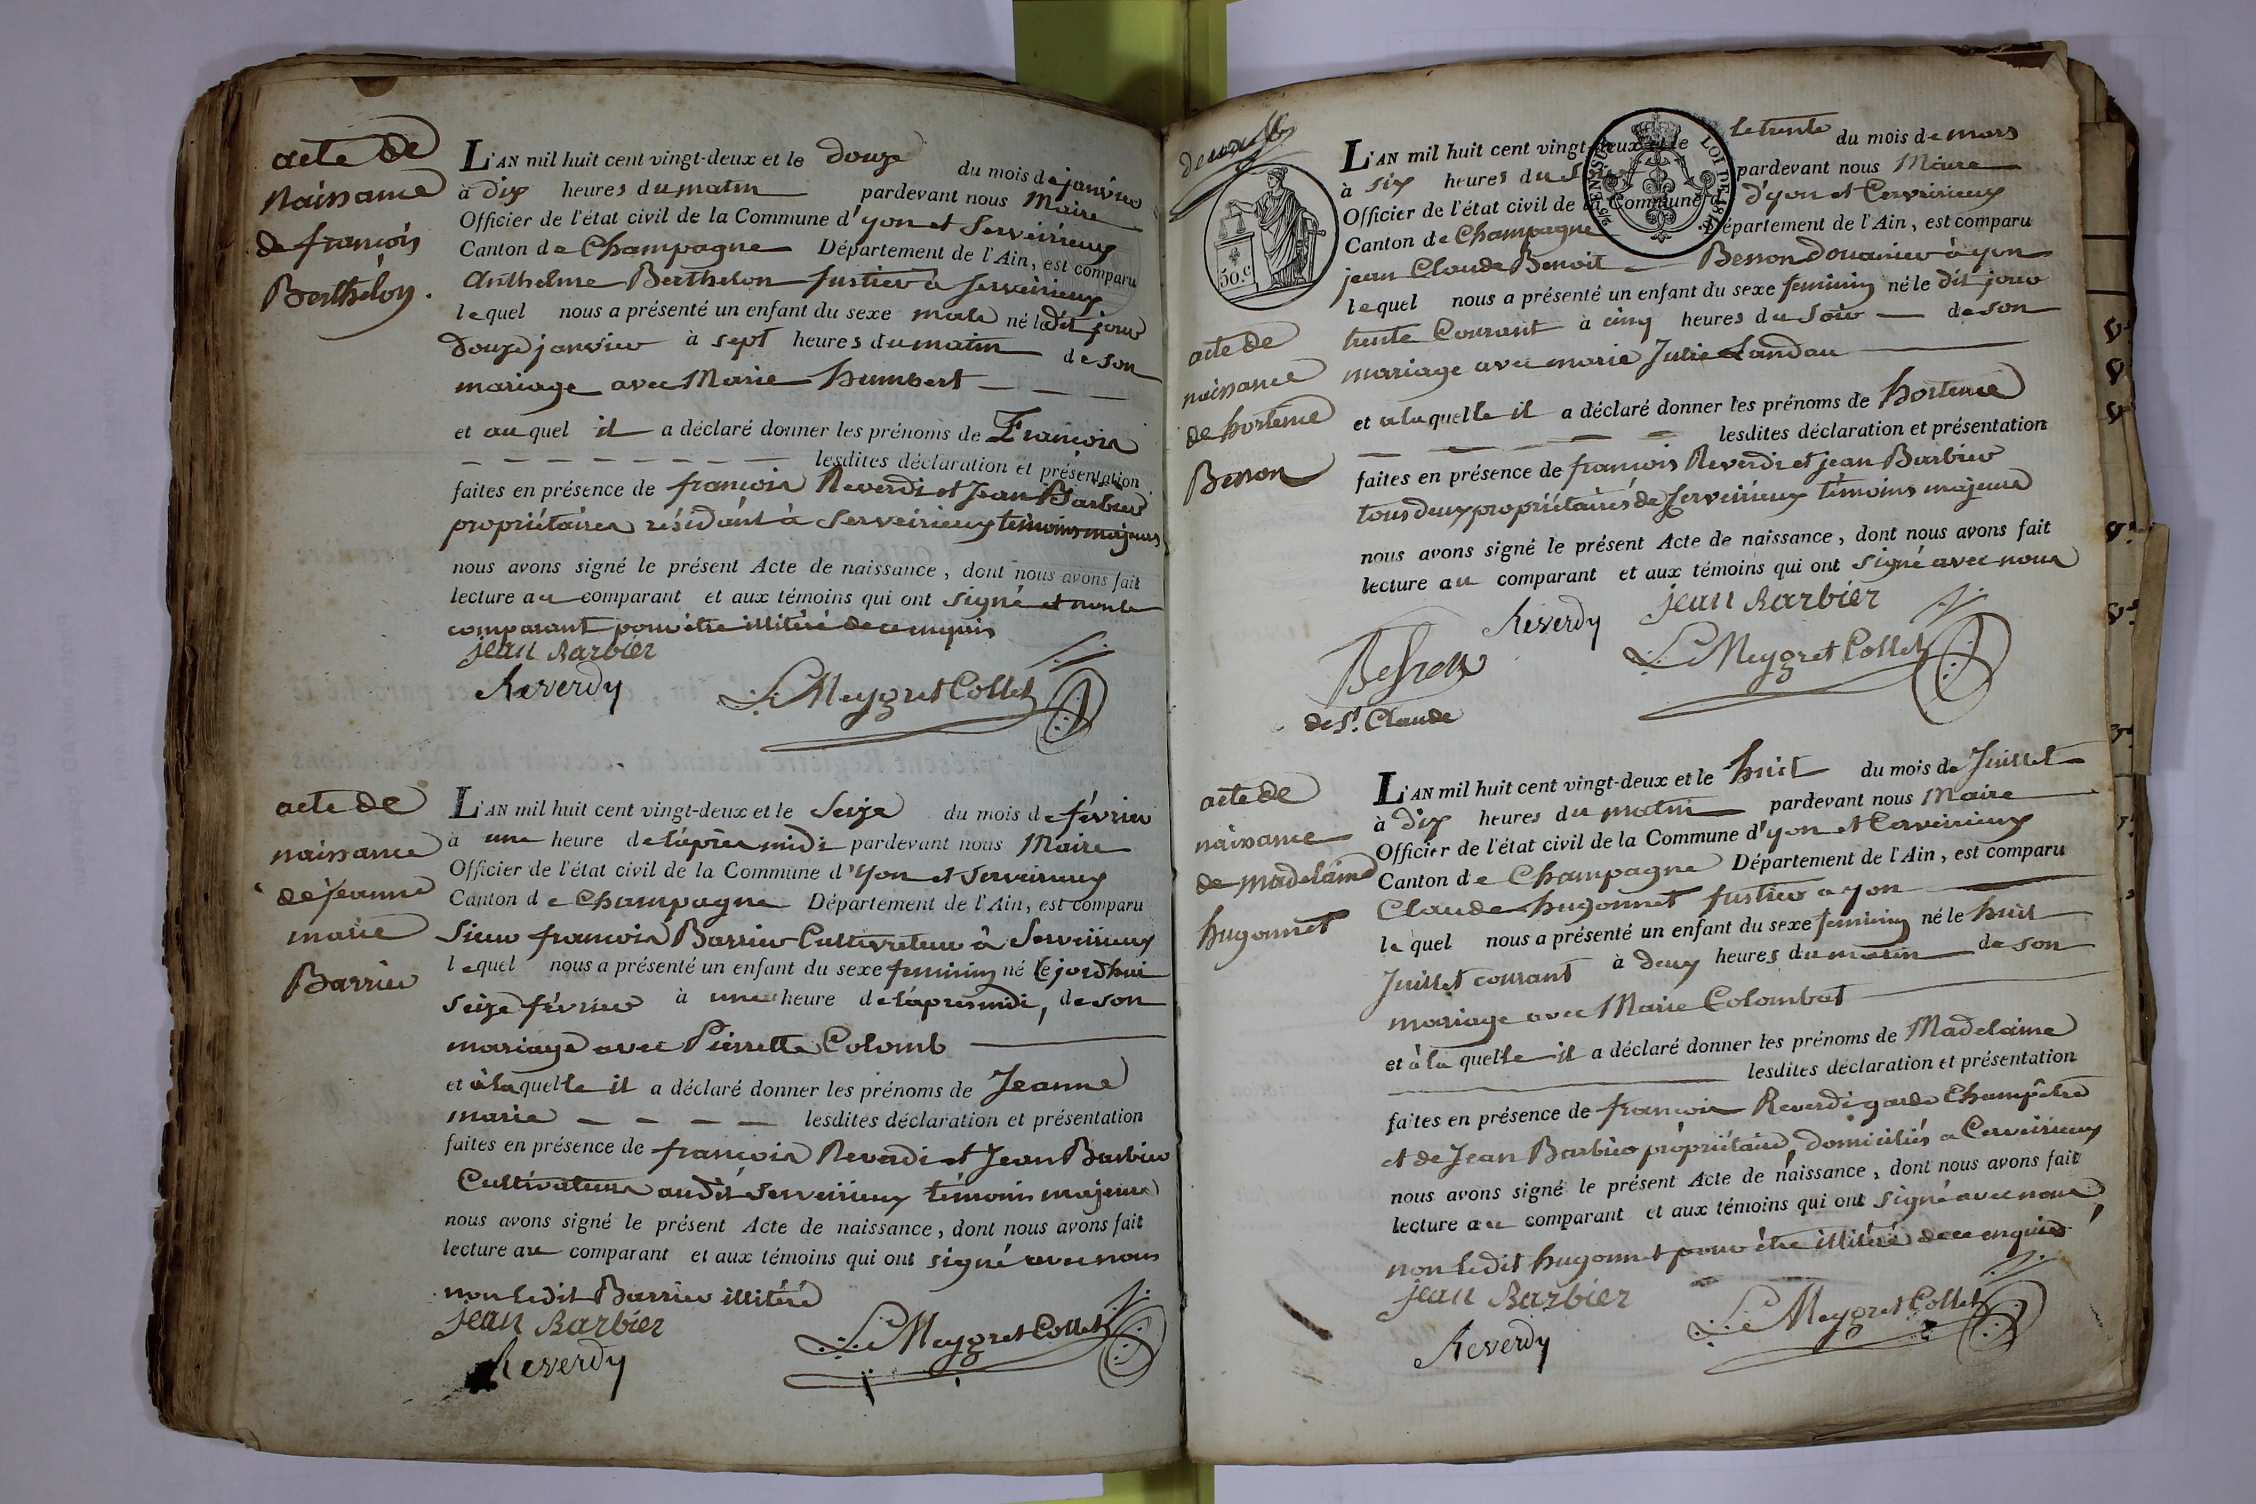 acte de
naissance
de françois
Berthelon.
L'AN mil huit cent vingt-deux et le douze du mois de janvier
à dix heures du matin pardevant nous Maire
Officier de l'état civil de la Commune d'yon et Serveirieux
Canton de Champagne Département de l'Ain, est comparu
Anthelme Berthelon fustier a Serveirieux
lequel nous a présenté un enfant du sexe male né le dit jour
douze janvier à sept heures du matin de son
mariage avec Marie humbert
et au quel il a déclaré donner les prénoms de François
lesdites déclaration et présentation
faites en présence de françois Reverdi et Jean Barbier
propriétaires résidant à Serveirieux témoins majeurs
nous avons signé le présent Acte de naissance, dont nous avons fait
lecture au comparant et aux témoins qui ont signé et non le
comparant pour être illitéré de ce enquis
jean Barbier
Reverdy
Le Meygret Collet
acte de
naissance
de jeanne
marie
Barrier
L'AN mil huit cent vingt-deux et le seize du mois de février
à une heure de l'après midi pardevant nous Maire
Officier de l'état civil de la Commune d'yon et Serveirieux
Canton de Champagne Département de l'Ain, est comparu
Sieur françois Barrier Cultivateur à Serveirieux
lequel nous a présenté un enfant du sexe feminin né le jordhui
seize février à une heure de l'apres midi, de son
mariage avec Pierrette Colomb
et à la quelle il a déclaré donner les prénoms de Jeanne
marie lesdites déclaration et présentation
faites en présence de françois Reverdi et Jean Barbier
Cultivateurs audit Serveirieux témoins majeurs
nous avons signé le présent Acte de naissance, dont nous avons fait
lecture au comparant et aux témoins qui ont signé avec nous
non ledit Barrier illitéré
jean Barbier
Reverdy
Le Meygret Collet
50.c
LOI DE 181
acte de
naissance
de hortense
Besson
L'AN mil huit cent vingt-deux et le le trente du mois de mars
à six heures du soir pardevant nous Maire
Officier de l'état civil de la Commune d'yon et Cerveirieux
Canton de Champagne Département de l'Ain, est comparu
jean Claude Benoit Besson douanier à yon
lequel nous a présenté un enfant du sexe feminin né le dit jour
trente Courant à cinq heures du soir de son
mariage avec marie Julie Landau
et a la quelle il a déclaré donner les prénoms de hortense
lesdites déclaration et présentation
faites en présence de françois Reverdi et jean Barbier
tous deux propriétaires de Serveirieux témoins majeurs
nous avons signé le présent Acte de naissance, dont nous avons fait
lecture au comparant et aux témoins qui ont signé avec nous
Reverdy
jean Barbier
Besson
de St. Claude
Le Meygret Collet
acte de
naissance
de madelaine
hugonnet
L'AN mil huit cent vingt-deux et le huit du mois de Juillet
à dix heures du matin pardevant nous Maire
Officier de l'état civil de la Commune d'yon et Cerveirieux
Canton de Champagne Département de l'Ain, est comparu
Claude hugonnet fustier a yon
le quel nous a présenté un enfant du sexe feminin né le huit
Juillet courant à deux heures du matin de son
mariage avec Marie Colombat
et à la quelle il a déclaré donner les prénoms de Madelaine
lesdites déclaration et présentation
faites en présence de françois Reverdi garde Champêtre
et de Jean Barbier propriétaire, domiciliés a Cerveirieux
nous avons signé le présent Acte de naissance, dont nous avons fait
lecture au comparant et aux témoins qui ont signé avec nous,
non ledit hugonnet pour être illitéré de ce enquis
jean Barbier
Reverdy
Le Meygret Collet